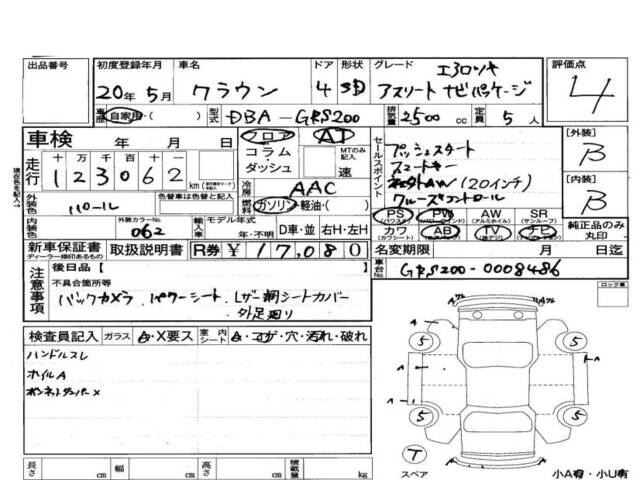 出品番号
初度登録年月
20年5月
車名
クラウン
ドア
4
形状
SD
グレード
エアロツキ
アスリート ナビパッケージ
評価点
4
車歴
自家用・( )
型式
DBA-GRS200
排気量
2500 cc
定員
5人
車検
年 月 日
フロア
コラム・ダッシュ
AT
MTのみ記入
速
セールスポイント
プッシュスタート
スマートキー
社外AW (20インチ)
クルーズコントロール
[外装]
B
[内装]
B
走行
十 万 千 百 十 一
123062
km
冷房
AAC
燃料
ガソリン・軽油・( )
外装色
パール
色替車は色替と記入
内装色
外装カラーNo.
062
輸入車
モデル年式
年・不明
D車・並
右H・左H
PS
(パワステ)
PW
AW
(アルミホイル)
SR
(サンルーフ)
カワ
(カワシート)
AB
TV
ナビ
純正品のみ丸印
新車保証書
ディーラー捺印あるもの
取扱説明書
R券
¥17,080
名変期限
月 日迄
車台No.
GRS200-0008486
注意事項
後日品 [ ]
不具合箇所等
バックカメラ、パワーシート、レザー調シートカバー
外足廻り
ロック車
検査員記入
ガラス
A・X要ス
室内シート
A・コゲ・穴・汚れ・破れ
ハンドルスレ
ホイルA
ボンネットダンパーX
A
A
A
A
5
5
5
5
T
スペア
小A有・小U有
長さ cm
幅 cm
高さ cm
積載量 kg